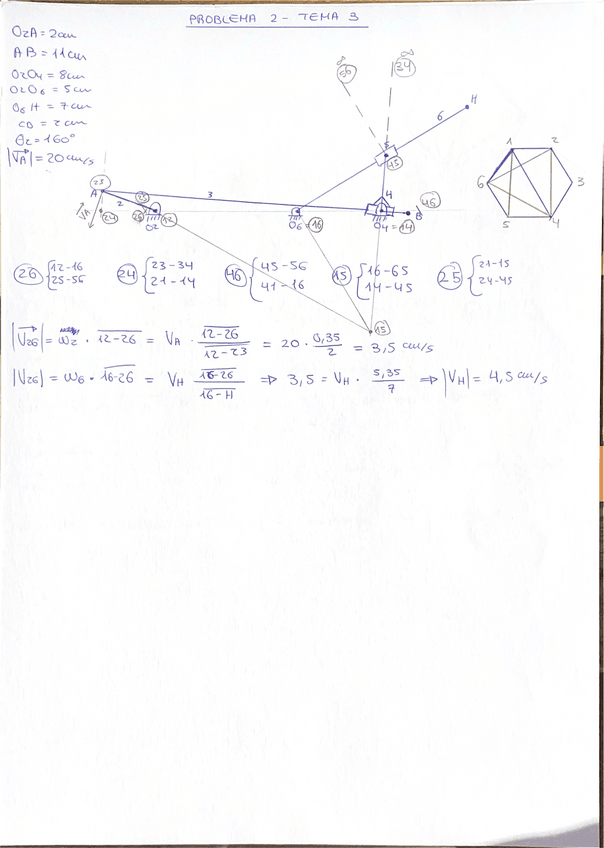 PROBLEMA 2 - TEMA 3
O2A = 2cm
AB = 11cm
O2O4 = 8cm
O2O6 = 5cm
O6H = 7cm
CD = 2cm
θ2 = 160°
|VA| = 20 cm/s
∞
56
∞
34
H
6
5
45
23
A
VA
2
24
25
26
O2
12
3
O6 = 16
4
O4 = 14
B
46
15
1
2
3
4
5
6
26 { 12-16
25-56
24 { 23-34
21-14
46 { 45-56
41-16
15 { 16-65
14-45
25 { 21-15
24-45
|V26| = ω2 · 12-26 = VA · 12-26 / 12-23 = 20 · 0,35 / 2 = 3,5 cm/s
|V26| = ω6 · 16-26 = VH 16-26 / 16-H ⇒ 3,5 = VH · 5,35 / 7 ⇒ |VH| = 4,5 cm/s